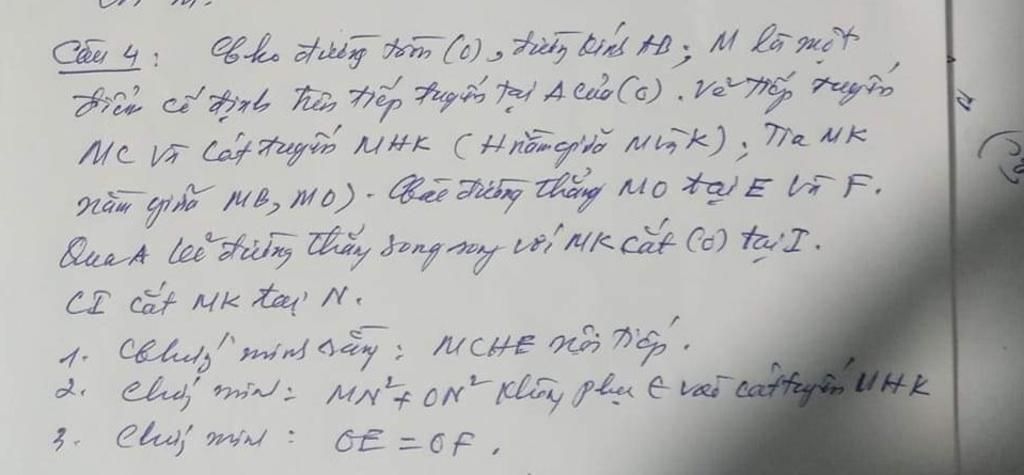 Câu 4: Cho đường tròn (O), đường kính AB; M là một
điểm cố định trên tiếp tuyến tại A của (O). Vẽ tiếp tuyến
MC và cát tuyến MHK (H nằm giữa M và K); Tia MK
nằm giữa MB, MO). Các đường thẳng MO tại E và F.
Qua A kẻ đường thẳng song song với MK cắt (O) tại I.
CI cắt MK tại N.
1. Chứng minh rằng: MCHE nội tiếp.
2. Chứng minh: MN² + ON² không phụ t vào cát tuyến MHK
3. Chứng minh: OE = OF.